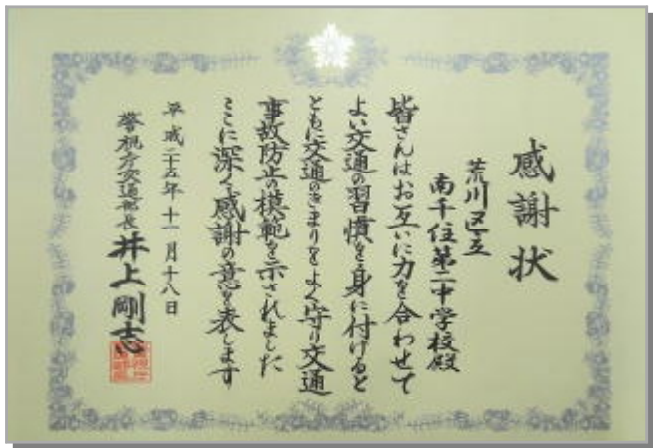 感謝状
荒川区立
南千住第二中学校殿
皆さんはお互いに力を合わせて
よい交通の習慣を身に付けると
ともに交通のきまりをよく守り交通
事故防止の模範を示されました
ここに深く感謝の意を表します
平成二十五年十一月十八日
警視庁交通部長 井上剛志